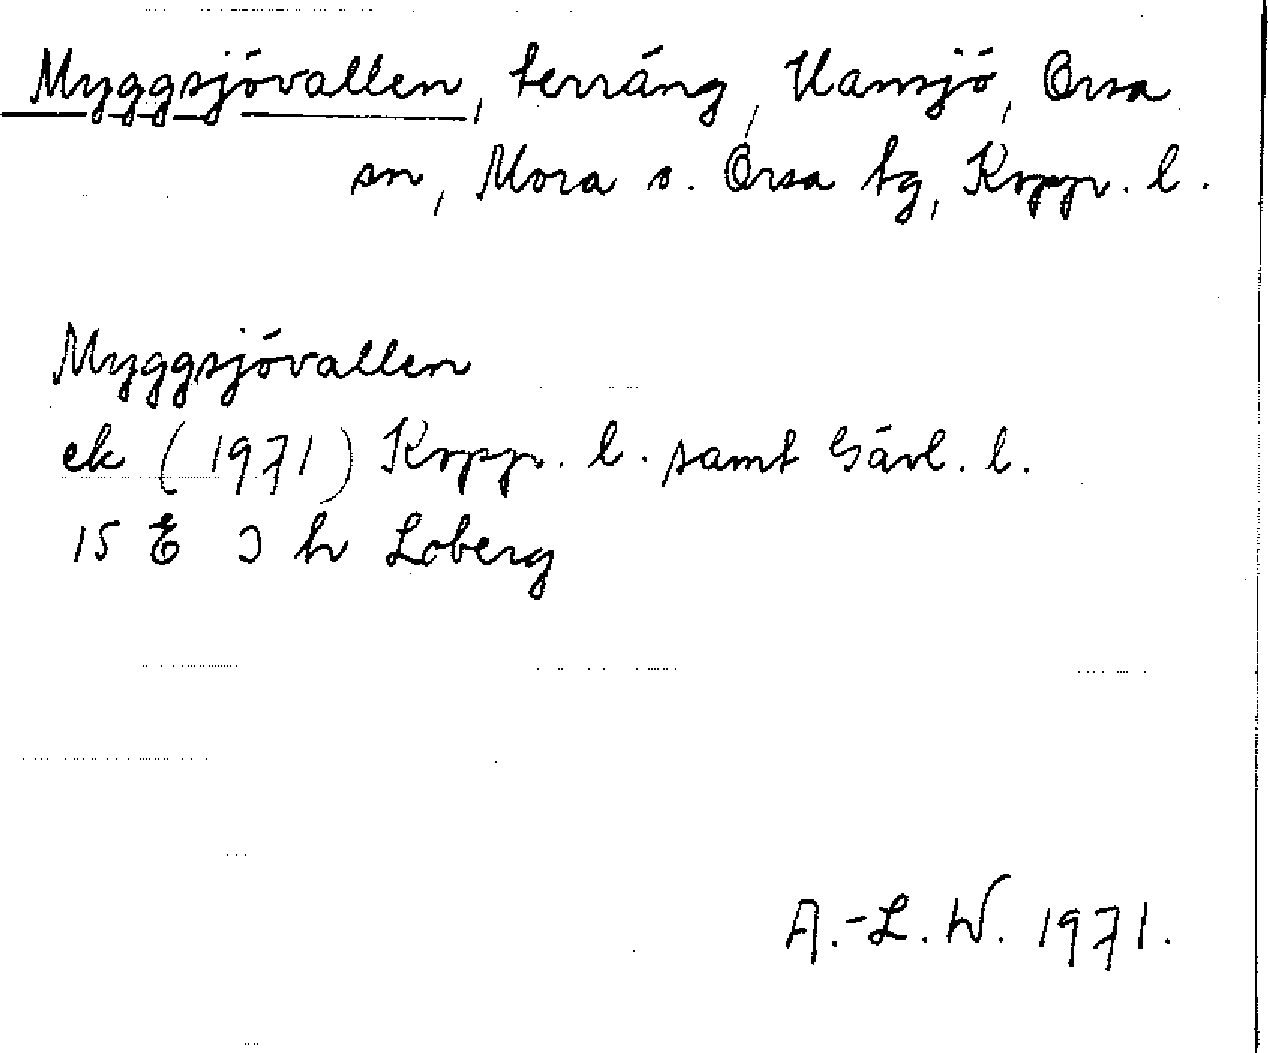 Myggsjövallen, terräng, Hansjö, Orsa
sn, Mora o. Orsa tg, Kopp. l.
Myggsjövallen
ek (1971) Kopp. l. samt Gävl. l.
15 E J h Loberg
A.-L. W. 1971.